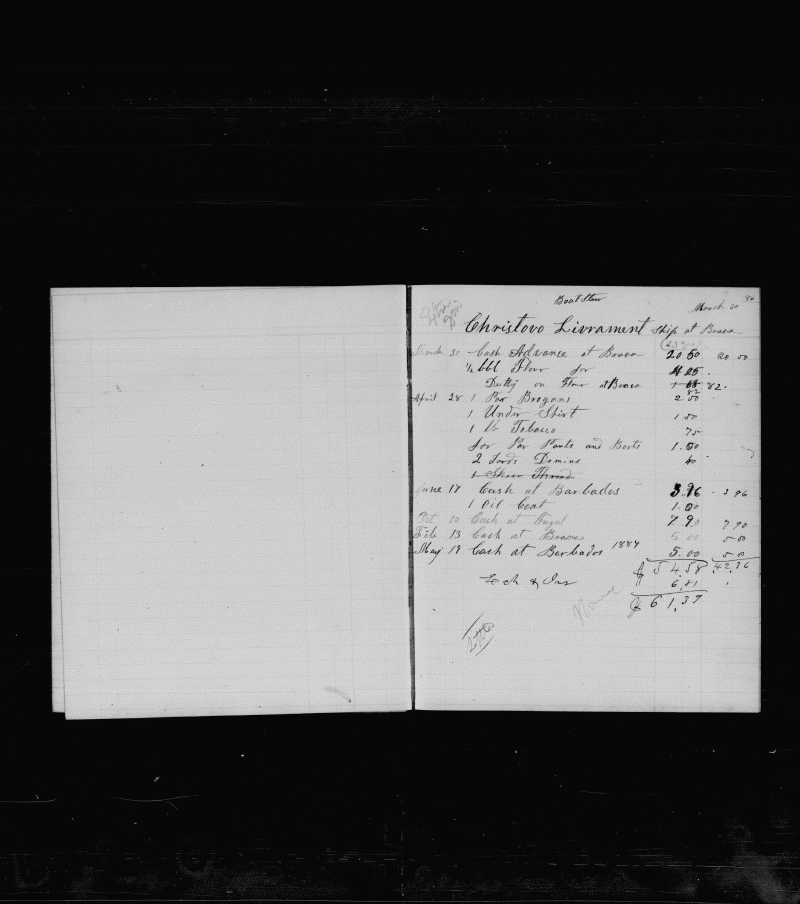 Boat Steer
March 30 86
Christovo Livrament Ship at Brava
March 30 Cash Advance at Brava 20.50 20 50
½ bbl Flour for 4 25
Dutty on Flour at Brava 1 68 82
82
April 28 1 Par Brogans 2 50
1 Under Shirt 1 50
1 lb Tobacco 75
for Par Pants and Boots 1.00
2 Yards Domine 40
1 Skein Thread
June 17 Cash at Barbados 3.96 3 96
1 Oil Coat 1.00
Oct 10 Cash at Fayal 7 90 7 90
Feb 13 Cash at Brava 5 00 5 00
May 19 Cash at Barbados 1887 5.00 5 00
$ 54,58 42,36
& Ins 6,81
$ 61,37
None